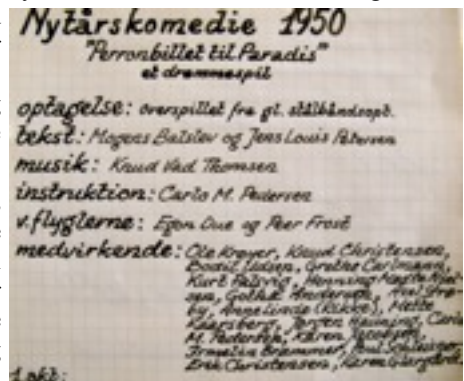 Nytårskomedie 1950
"Perronbillet til Paradis"
et drømmespil
optagelse: overspillet fra gl. stålbåndsopt.
tekst: Mogens Balslev og Jens Louis Petersen
musik: Knud Vad Thomsen
instruktion: Carlo M. Pedersen
v. flyglerne: Egon Due og Peer Frost
medvirkende: Ole Krøyer, Knud Christensen,
Bodil Udsen, Grethe Carlmann,
Kurt Ravn, Henning
sen, Gotha Andersen,
by, Annelinda (Rikke), Mette
Kaarsberg, Jørgen Henning, Carlo
M. Pedersen, Karen
Irmelin Brammer, Poul
Erik Christensen, Karen
1. akt: